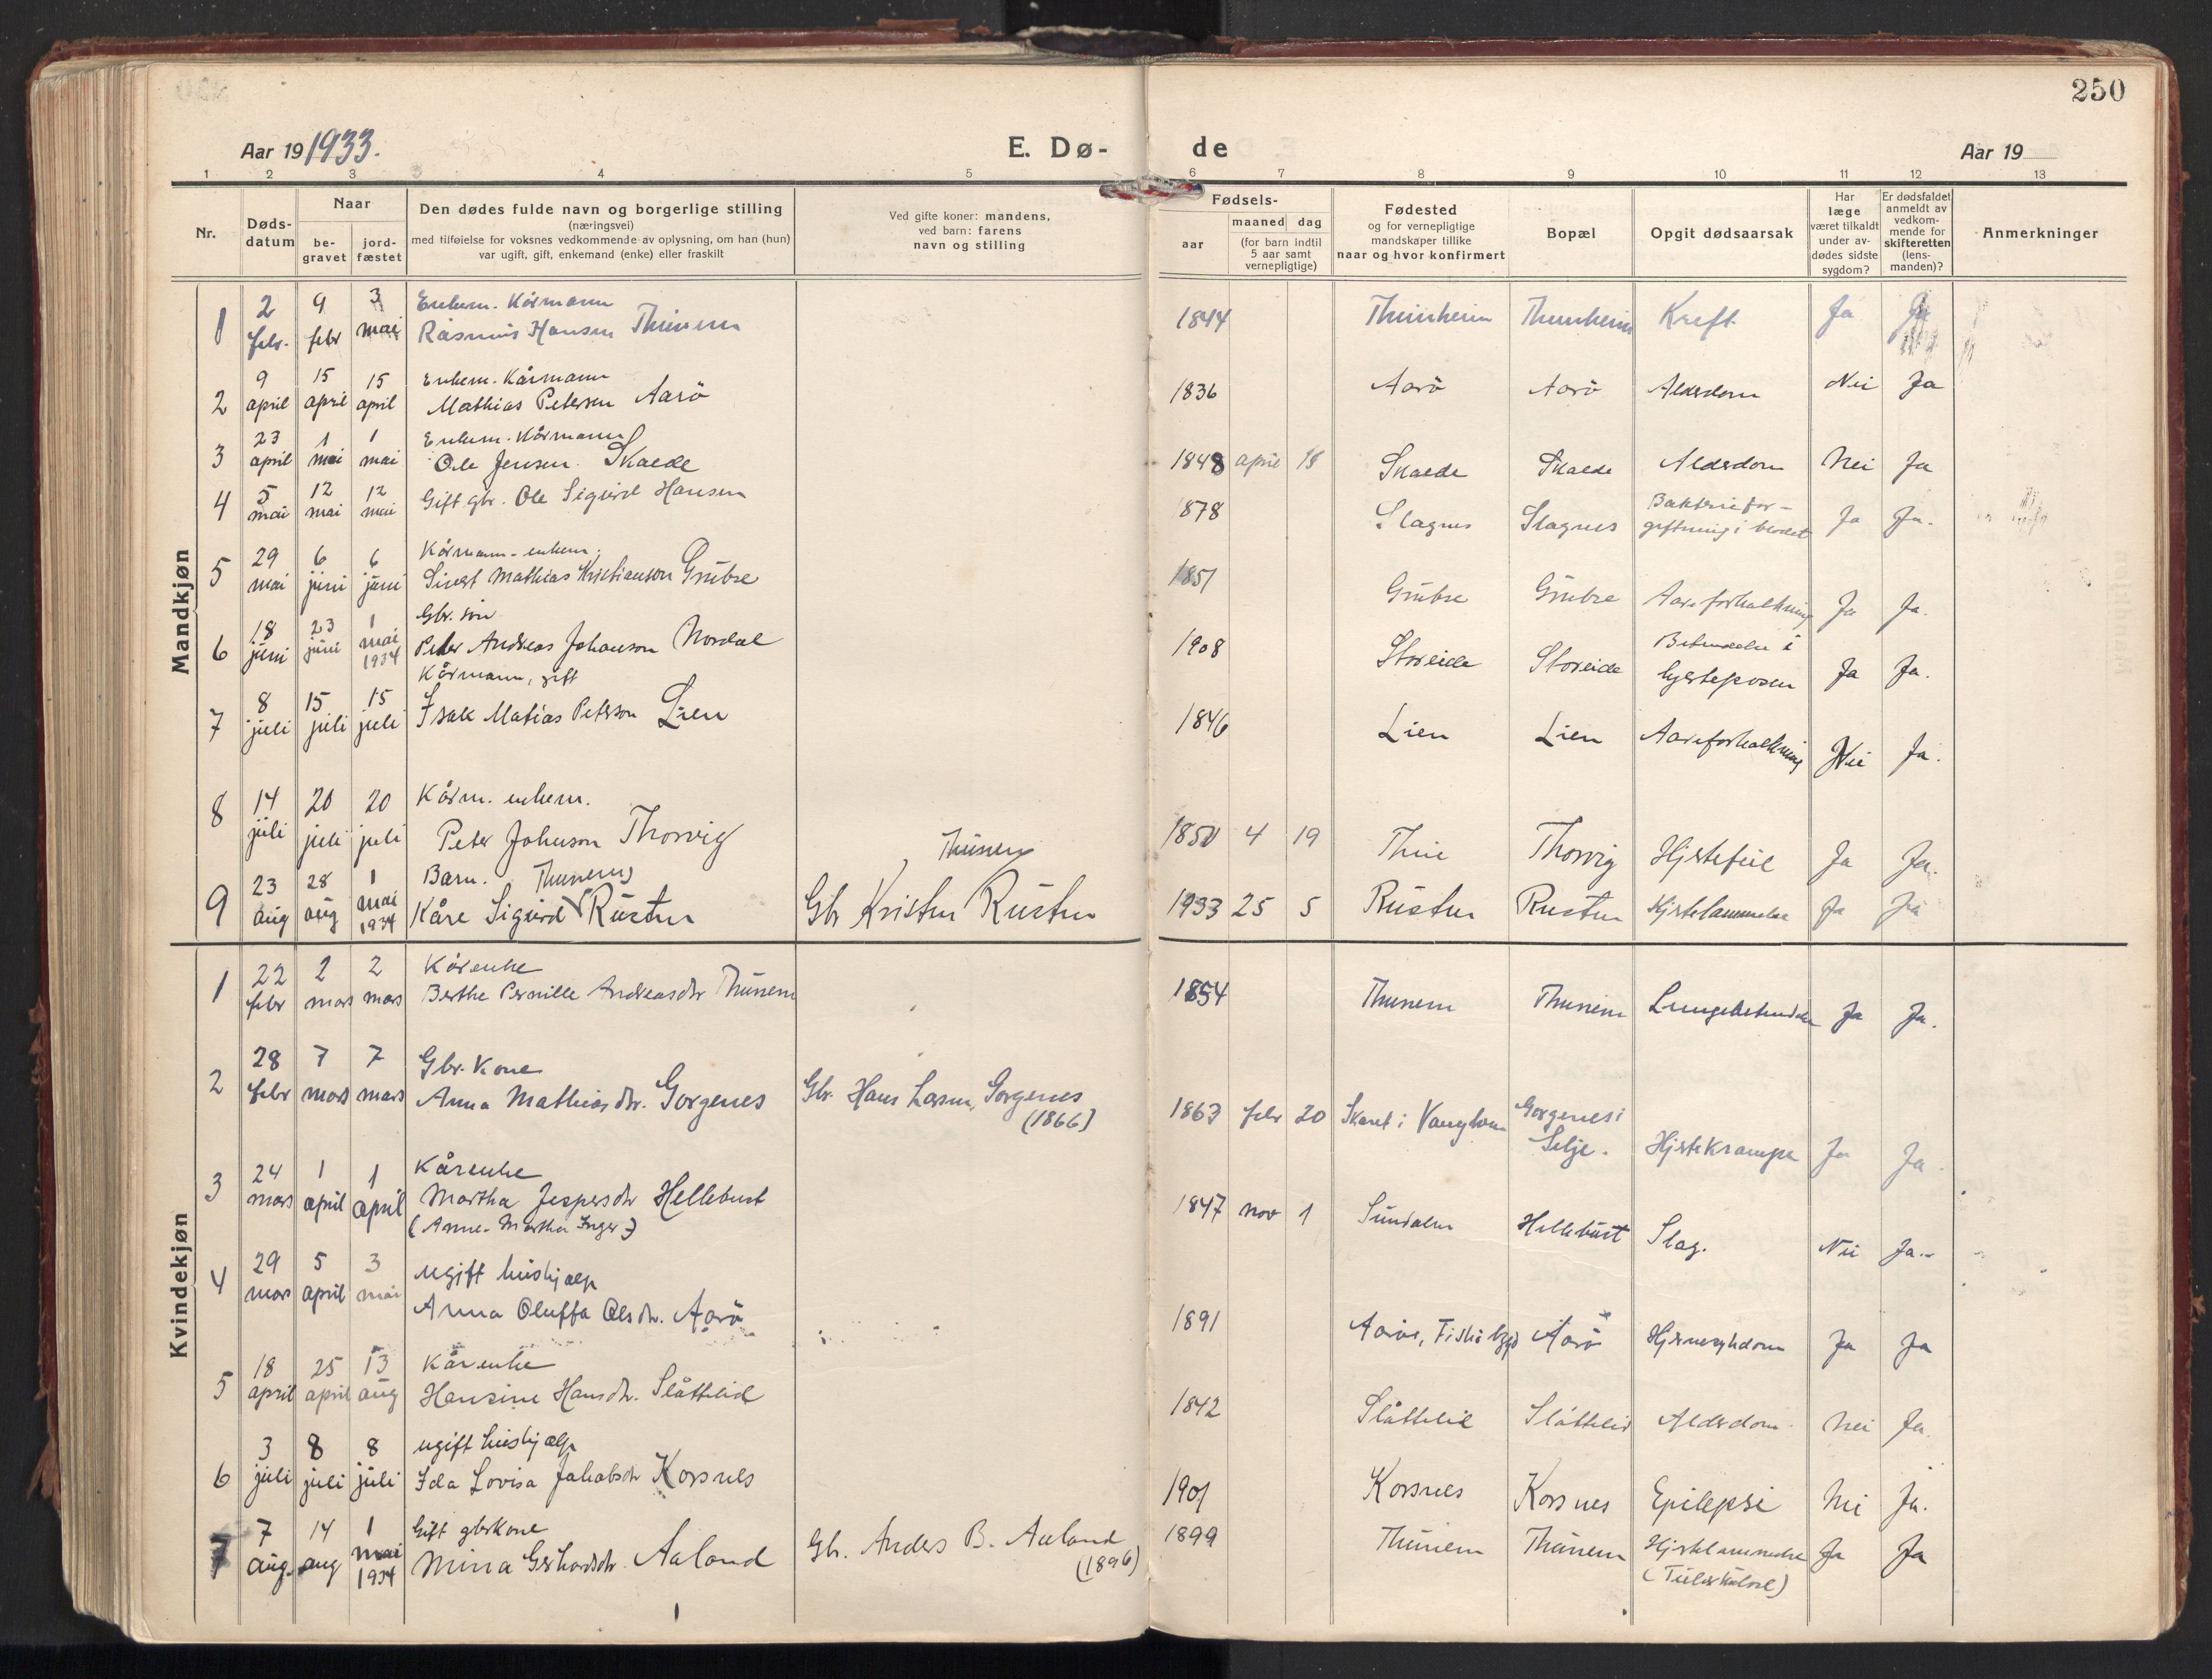 250
Aar 19 1933.
E. Dø-
de
Aar 19
1 2 3 4 5 6 7 8 9 10 11 12 13
Nr.
Døds-
datum
Naar
be-
gravet
jord-
fæstet
Den dødes fulde navn og borgerlige stilling
(næringsvei)
med tilføielse for voksnes vedkommende av oplysning, om han (hun)
var ugift, gift, enkemand (enke) eller fraskilt
Ved gifte koner: mandens,
ved barn: farens
navn og stilling
Fødsels-
aar
maaned dag
(for barn indtil
5 aar samt
vernepligtige)
Fødested
og for vernepligtige
mandskaper tillike
naar og hvor konfirmert
Bopæl
Opgit dødsaarsak
Har
læge
været tilkaldt
under av-
dødes sidste
sygdom?
Er dødsfaldet
anmeldt av
vedkom-
mende for
skifteretten
(lens-
manden)?
Anmerkninger
Mandkjøn
2 9 3 Enkem. Kårmann
1 febr. febr mai Rasmus Hansen Thunem 1844 Thunheim Thunheim Kreft Ja Ja
9 15 15 Enkem. Kårmann
2 april april april Mathias Petersen Aarö 1836 Aarö Aarö Alderdom Nei Ja
23 1 1 Enkem. Kårmann
3 april mai mai Ole Jensen Skaede 1848 april 18 Skaede Skaede Alderdom Nei Ja
5 12 12
4 mai mai mai Gift gbr. Ole Sigurd Hansen 1878 Slagnes Slagnes Bakteriefor-
giftning i blodet Ja Ja.
29 6 6 Kårmann - enkem.
5 mai juni juni Sivert Mathias Kristianson Grubse 1851 Grubse Grubse Aareforkalkning Ja Ja.
18 23 1 Gbr. søn
6 juni juni mai 1934 Peder Andreas Johanson Nordal 1908 Storeide Storeide Betendelse i
hjerteposen Ja Ja.
Kårmann, gift
8 15 15
7 juli juli juli Isak Matias Peterson Lien 1846 Lien Lien Aareforkalkning Nei Ja.
14 20 20 Kårm. enkem.
8 juli juli juli Peter Johnson Thorvig 1850 4 19 Thue Thorvig Hjertefeil Ja Ja.
23 28 1 Barn. Thunem Thunem
9 aug aug mai 1934 Kåre Sigurd Rusten Gbr Kristen Rusten 1933 25 5 Rusten Rusten Hjertelammelse Ja Ja
Kvindekjøn
22 2 2 Kårenke
1 febr mars mars Berthe Pernille Andreasdtr Thunem 1854 Thunem Thunem Lungebetendelse Ja Ja.
28 7 7 Gbr. Kone
2 febr mars mars Anna Mathiasdtr. Gorgenes Gbr. Hans Larsen, Gorgenes
(1866) 1863 febr 20 Skaret i Gorgenes i
Selje. Hjertekrampe Ja Ja
24 1 1 Kårenke
3 mars april april Martha Jespersdtr Hellebust 1847 nov 1 Sundalen Hellebust Slag. Nei Ja.
(Anne-Martha Inger)
29 5 3 ugift hushjælp
4 mars april mai Anna Oluffa Olsdtr. Aarö 1891 Aarö, Fiskåbygd Aarö Hjernesykdom Ja Ja
18 25 13 Kårenke
5 april april aug Hansine Hansdtr. Slåttelid 1842 Slåttelid Slåttelid Alderdom Nei Ja.
3 8 8 ugift hushjælp
6 juli juli juli Ida Lovisa Jakobsdtr Korsnes 1901 Korsnes Korsnes Epilepsi Nei Ja.
7 14 1 Gift gbrkone
7 aug. aug mai 1934 Mina Gerhardsdtr. Aaland Gbr. Anders B. Aaland
(1896) 1899 Thunem Thunem Hjertelammelse Ja Ja